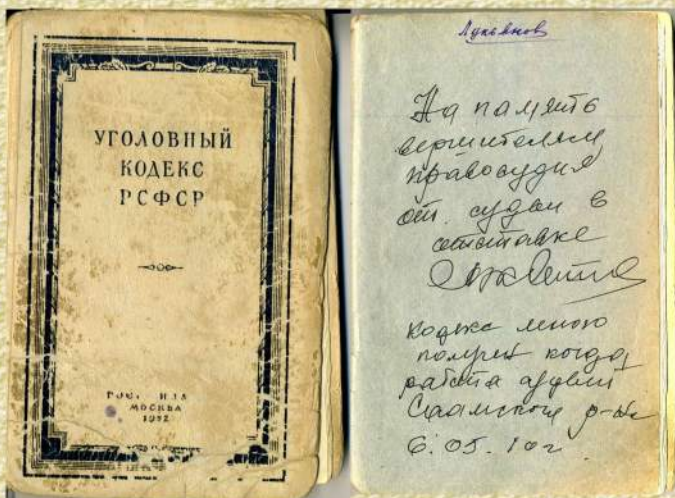 УГОЛОВНЫЙ
КОДЕКС
РСФСР
МОСКВА
1952
Лукьянов
На память
вершителям
правосудия
от судьи в
отставке
Кодекс мною
получен когда
работа судьей
Саамского р-на
6.05.10г